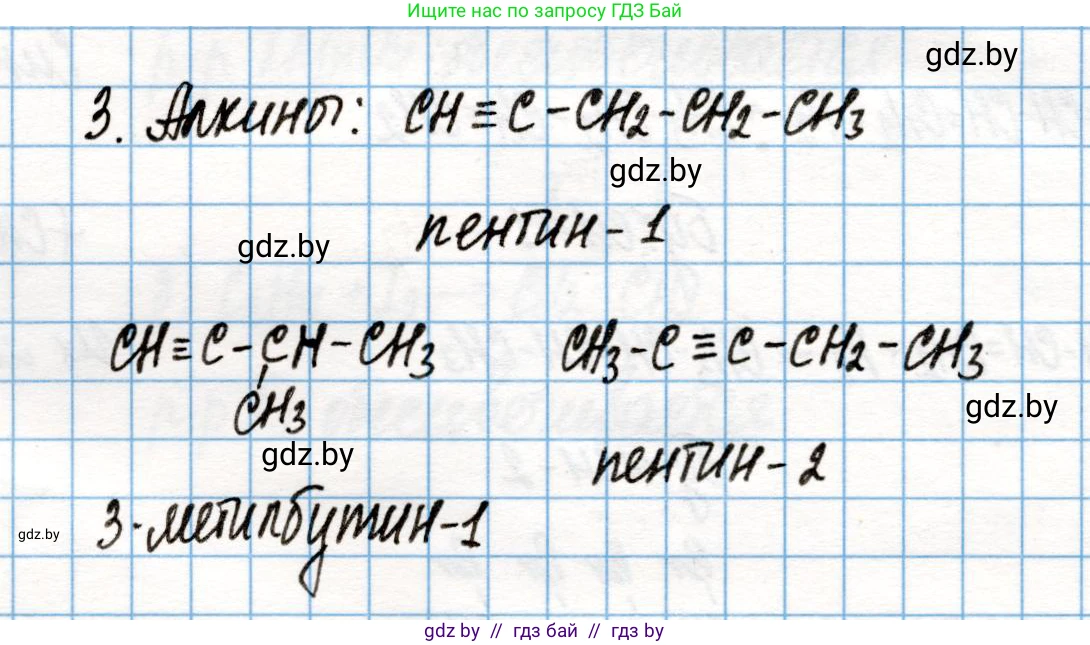 Ищите нас по запросу ГДЗ Бай
gdz.by
3. Алкины: CH≡C-CH2-CH2-CH3
gdz.by
пентин-1
gdz.by
CH≡C-CH-CH3
CH3
CH3-C≡C-CH2-CH3
gdz.by
gdz.by
пентин-2
3-метилбутин-1
gdz.by
gdz by // гдз бай // гдз by